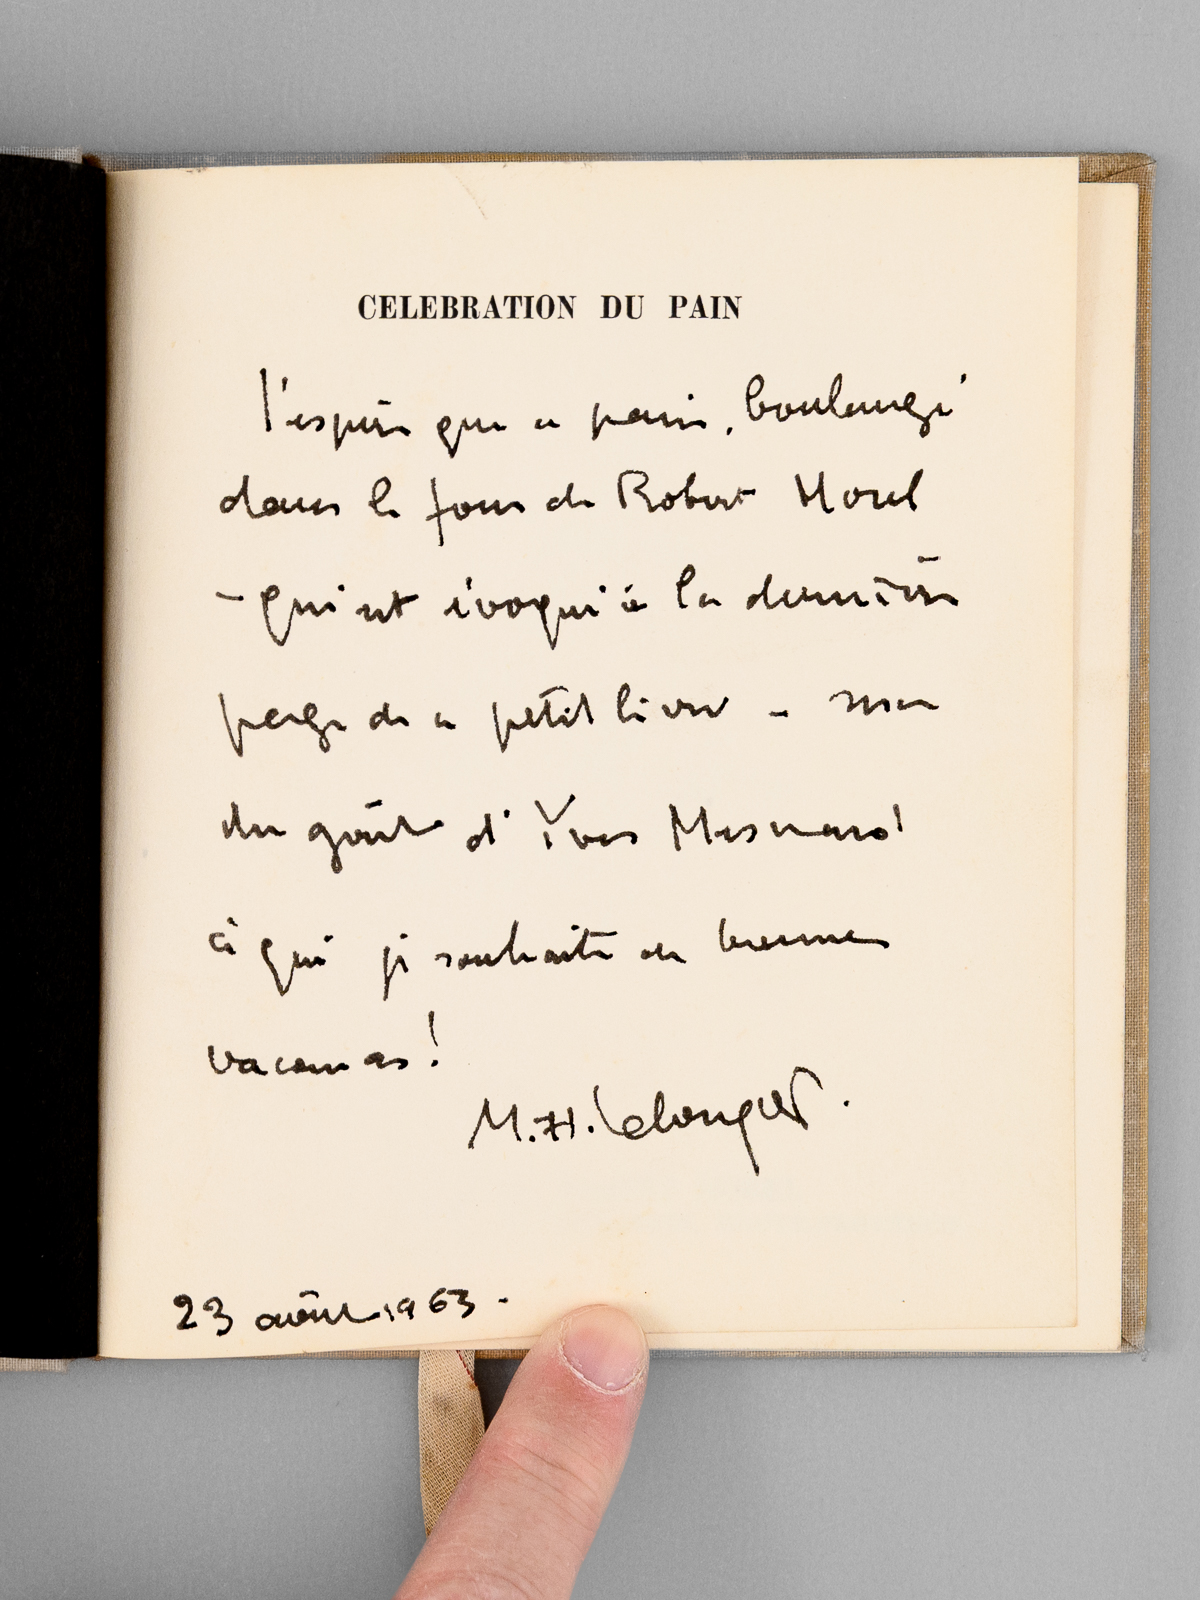 CELEBRATION DU PAIN
J'espère que ce pain, boulangé
dans le four de Robert Morel
- qui est évoqué à la dernière
page de ce petit livre - sera
du goût d'Yves Mesnard
à qui je souhaite de bonnes
vacances !
M. H. Lelong
23 août 1963.